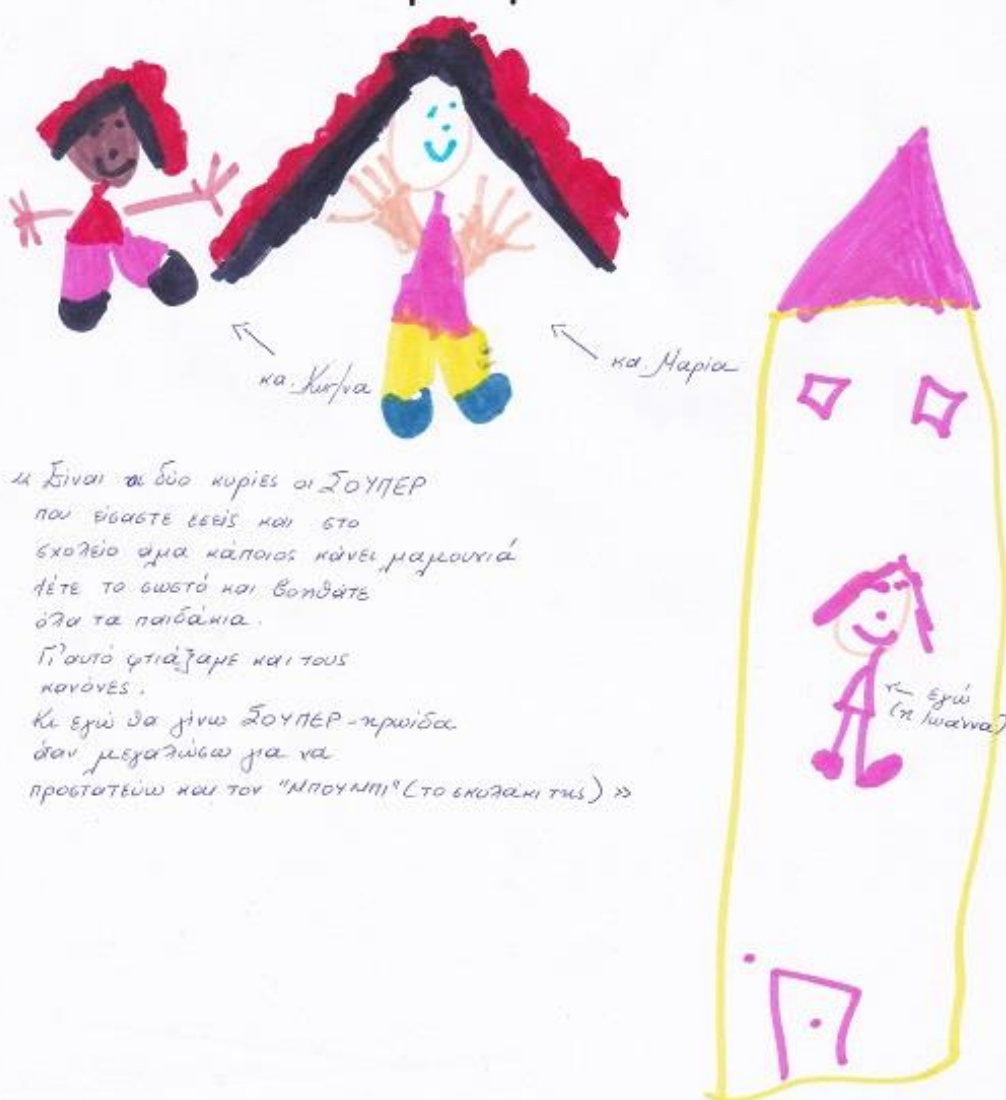 κα. Κων/να
κα. Μαρία
« Είναι οι δύο κυρίες οι ΣΟΥΠΕΡ
που είσαστε εσείς και στο
σχολείο άμα κάποιος κάνει μαμουνιά
λέτε το σωστό και βοηθάτε
όλα τα παιδάκια.
Γι' αυτό φτιάξαμε και τους
κανόνες.
Κι εγώ θα γίνω ΣΟΥΠΕΡ-ηρωίδα
όταν μεγαλώσω για να
προστατεύω και τον "ΜΠΟΥΜΠΙ" (το σκυλάκι της) »
εγώ
(η Ιωάννα)